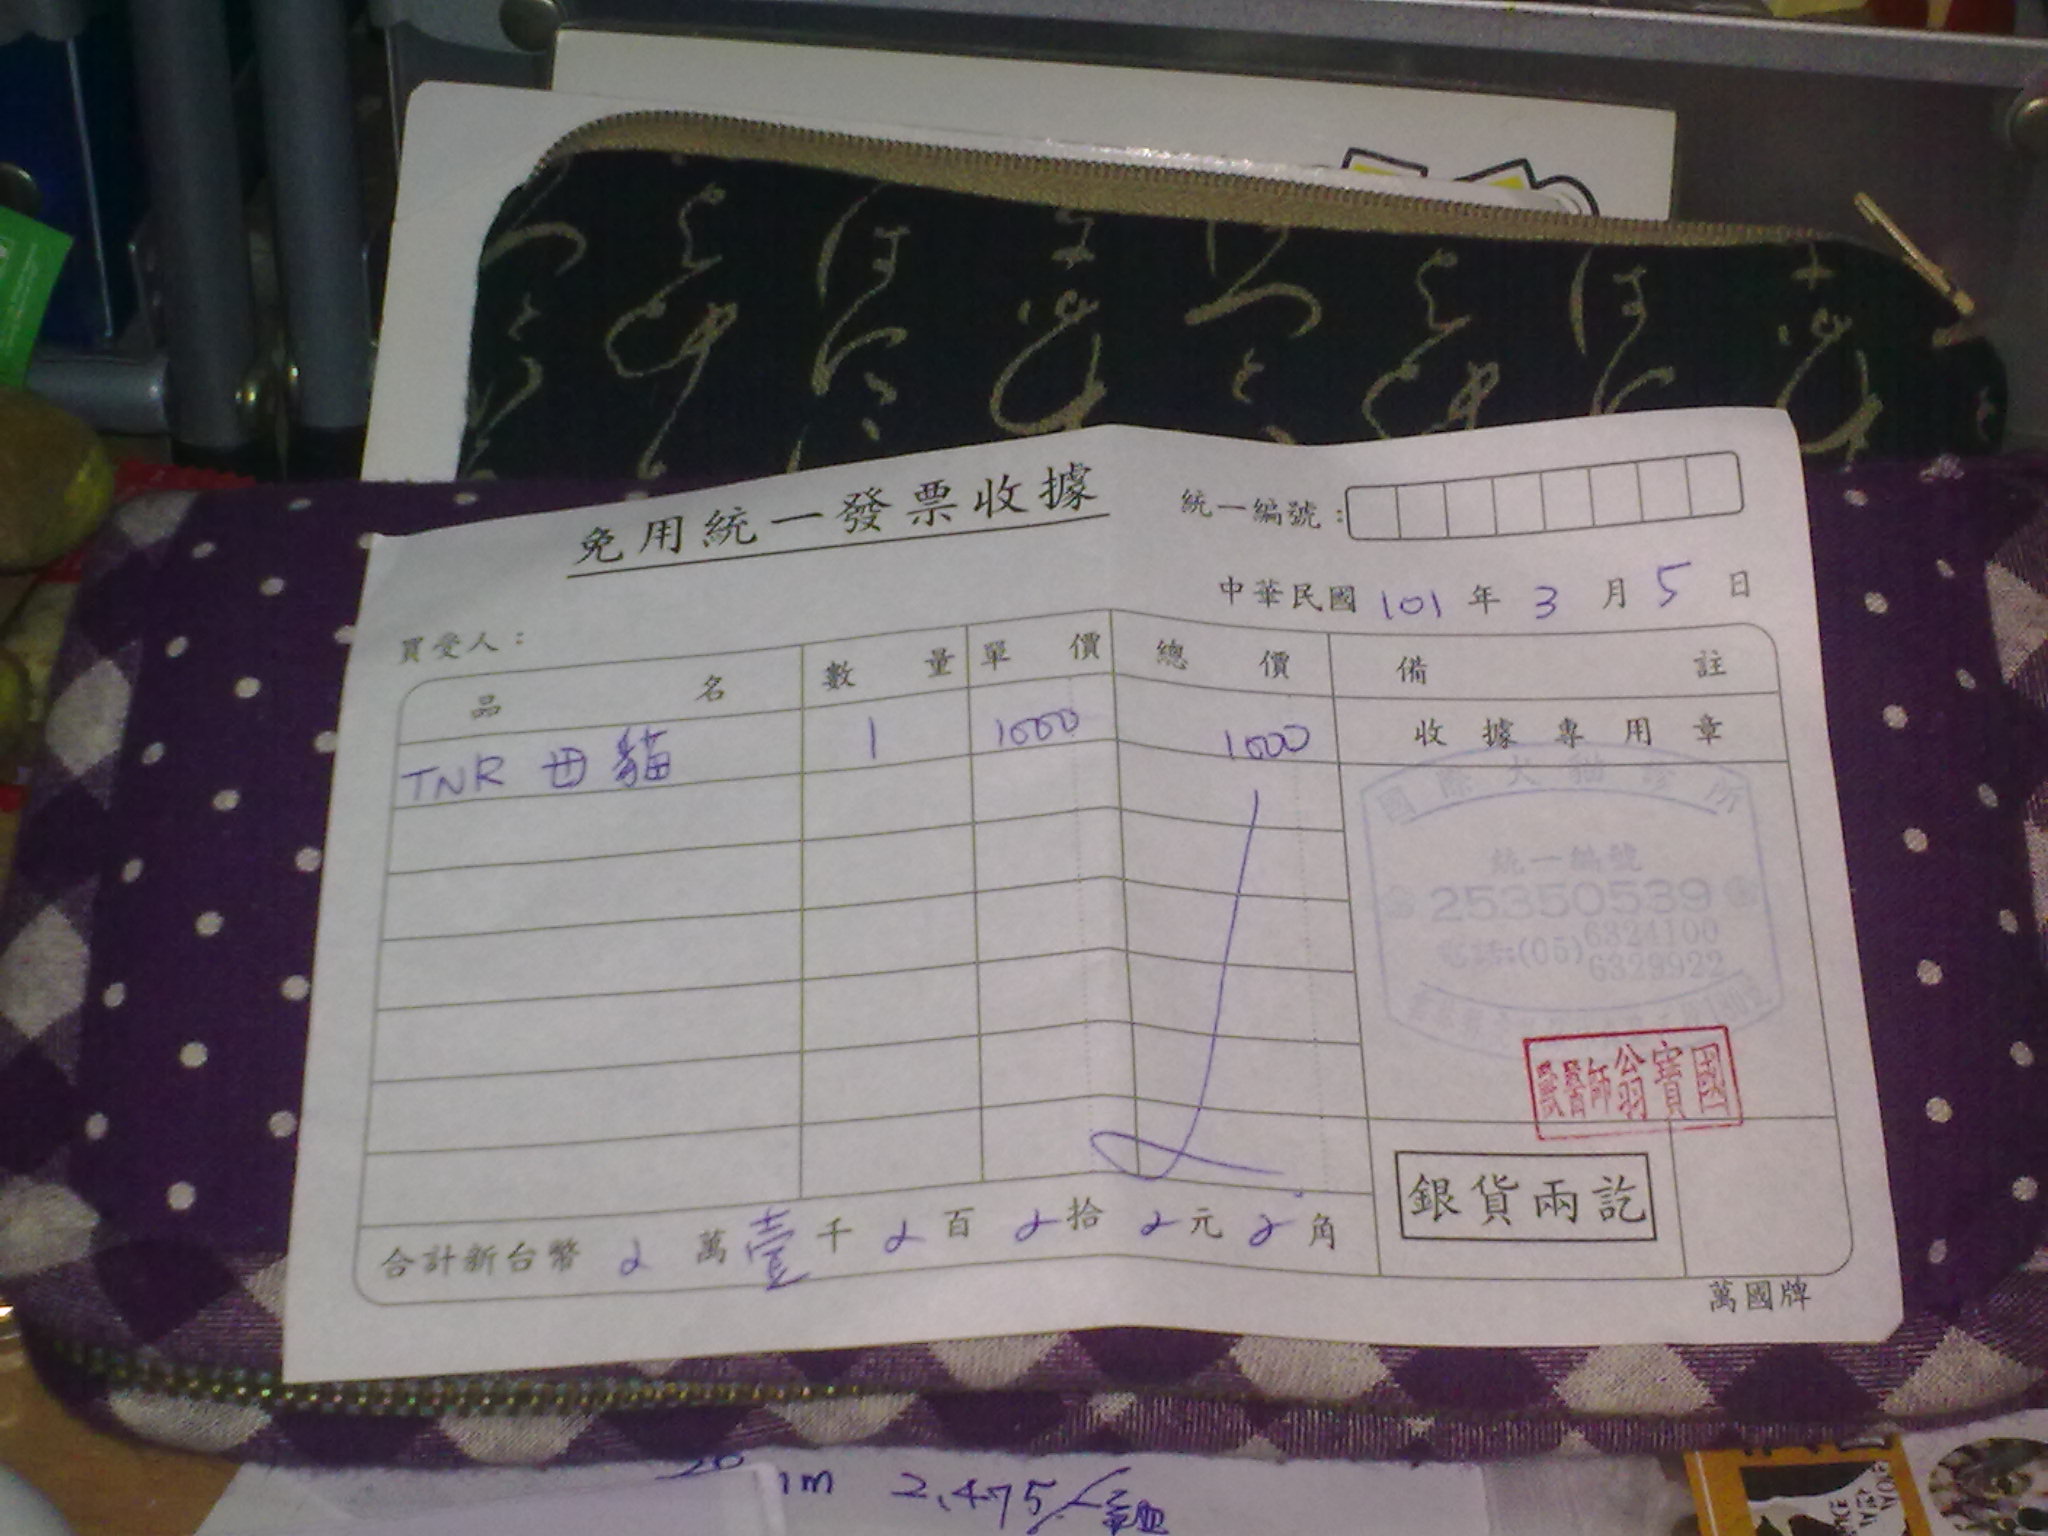 免用統一發票收據
統一編號：
中華民國 101 年 3 月 5 日
買受人：
品名 數量 單價 總價 備註
TNR 母貓 1 1000 1000
收據專用章
國際犬貓診所
統一編號
25350539
電話:(05)6324100
6329922
獸醫師翁寶國
合計新台幣 萬壹千 百 拾 元 角
銀貨兩訖
萬國牌
1m 2,475/組